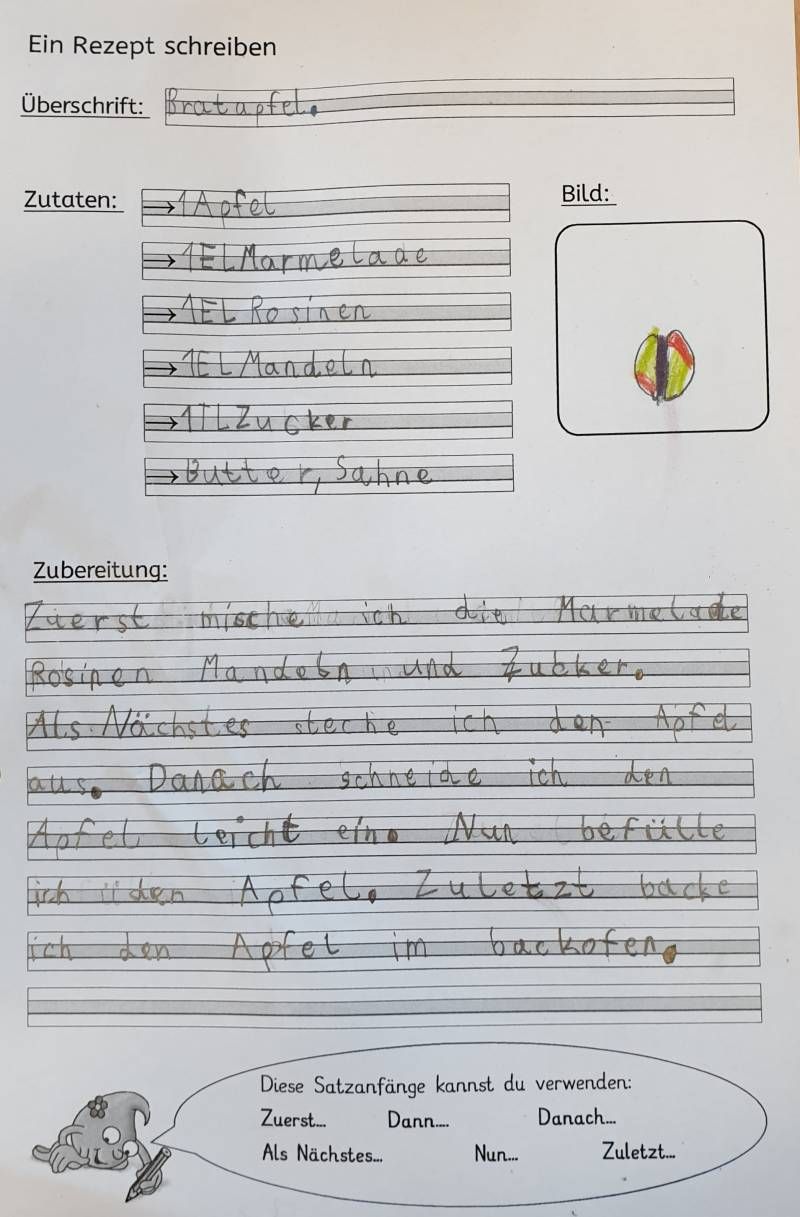 Ein Rezept schreiben
Überschrift: Bratapfel.
Zutaten: → 1 Apfel
Bild:
→ 1 EL Marmelade
→ 1 EL Rosinen
→ 1 EL Mandeln
→ 1 TL Zucker
→ Butter, Sahne
Zubereitung:
Zuerst mische ich die Marmelade
Rosinen Mandeln und Zucker.
Als Nächstes steche ich den Apfel
aus. Danach schneide ich den
Apfel leicht ein. Nun befülle
ich den Apfel. Zuletzt backe
ich den Apfel im backofen.
Diese Satzanfänge kannst du verwenden:
Zuerst... Dann.... Danach...
Als Nächstes... Nun... Zuletzt...